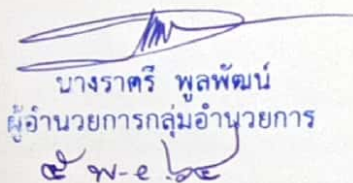 นางราตรี พูลพัฒน์
ผู้อำนวยการกลุ่มอำนวยการ
๕ พ.ย. ๖๔